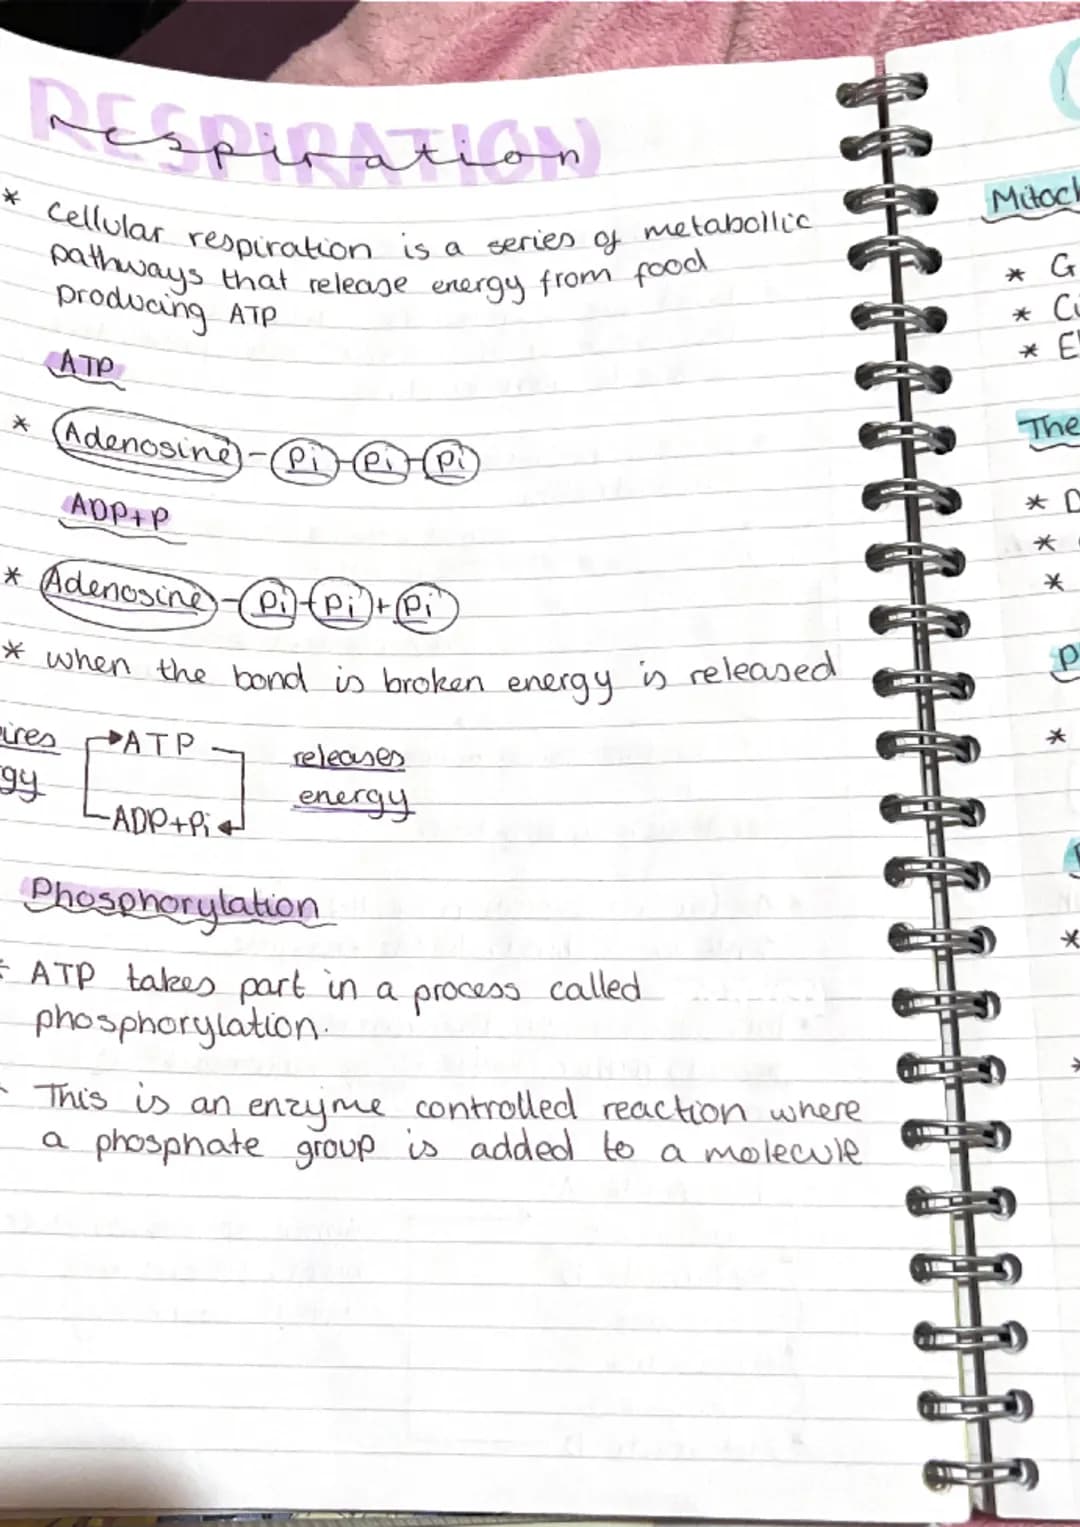 RESPIRATION
respiration
* cellular respiration is a series of metabollic
pathways that release energy from food
producing ATP
ATP
* Adenosine - Pi - Pi - Pi
ADP+P
* Adenosine - Pi - Pi + Pi
* when the bond is broken energy is released
ires
gy
ATP
ADP+Pi
releases
energy
Phosphorylation
* ATP takes part in a process called
phosphorylation.
* This is an enzyme controlled reaction where
a phosphate group is added to a molecule
Mitoch
* G
* E
The
* D
*
*
P
*
*